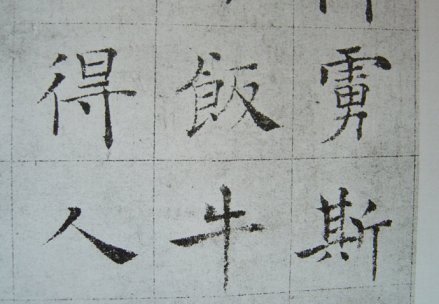 斯
飯牛
得人